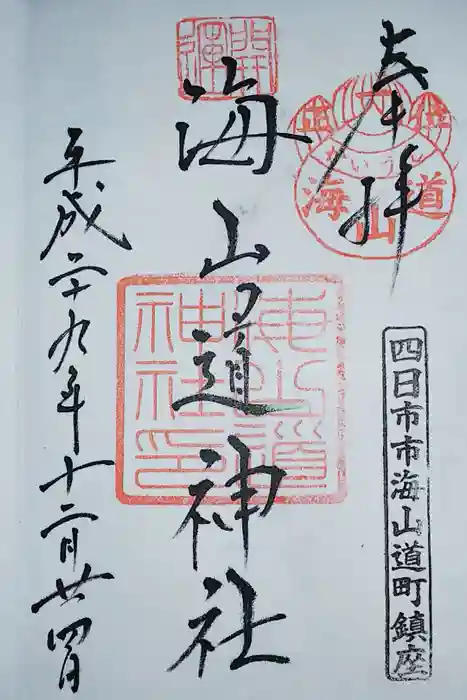 奉拝
四日市市海山道町鎮座
開運
海山道
海山道神社
海山道神社印
平成二十九年十二月廿四日